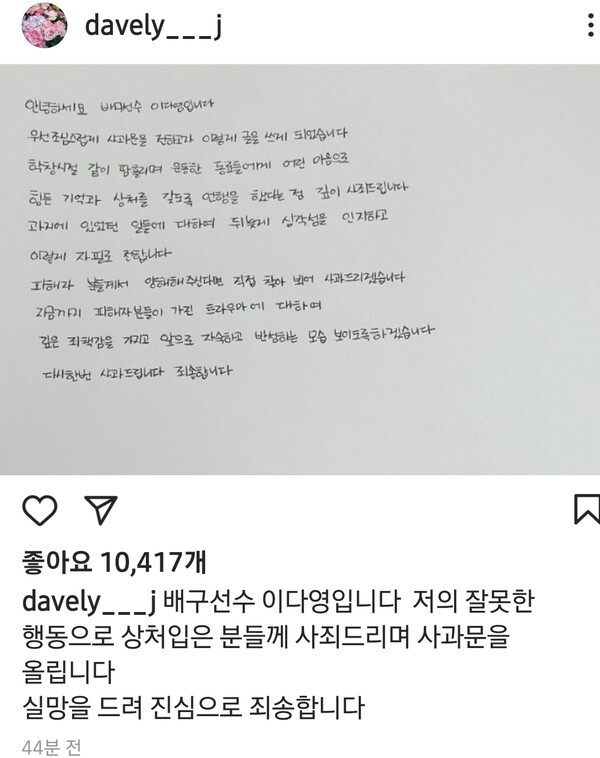 davely___j
안녕하세요 배구선수 이다영입니다
우선 조심스럽게 사과문을 전하고자 이렇게 글을 쓰게 되었습니다
학창시절 같이 땀흘리며 운동한 동료들에게 어린 마음으로
힘든 기억과 상처를 갖도록 언행을 했다는 점 깊이 사죄드립니다
과거에 있었던 일들에 대하여 뒤늦게 심각성을 인지하고
이렇게 자필로 전합니다
피해자 분들께서 양해해주신다면 직접 찾아 뵈어 사과드리겠습니다
지금까지 피해자분들이 가진 트라우마에 대하여
깊은 죄책감을 가지고 앞으로 자숙하고 반성하는 모습 보이도록하겠습니다
다시한번 사과드립니다 죄송합니다
좋아요 10,417개
davely___j 배구선수 이다영입니다 저의 잘못한
행동으로 상처입은 분들께 사죄드리며 사과문을
올립니다
실망을 드려 진심으로 죄송합니다
44분 전